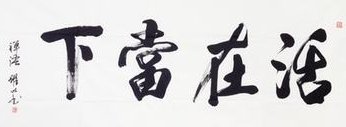 活在當下
禪語